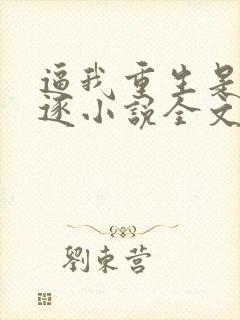 逼我重生是
逐小說全文
劉東营